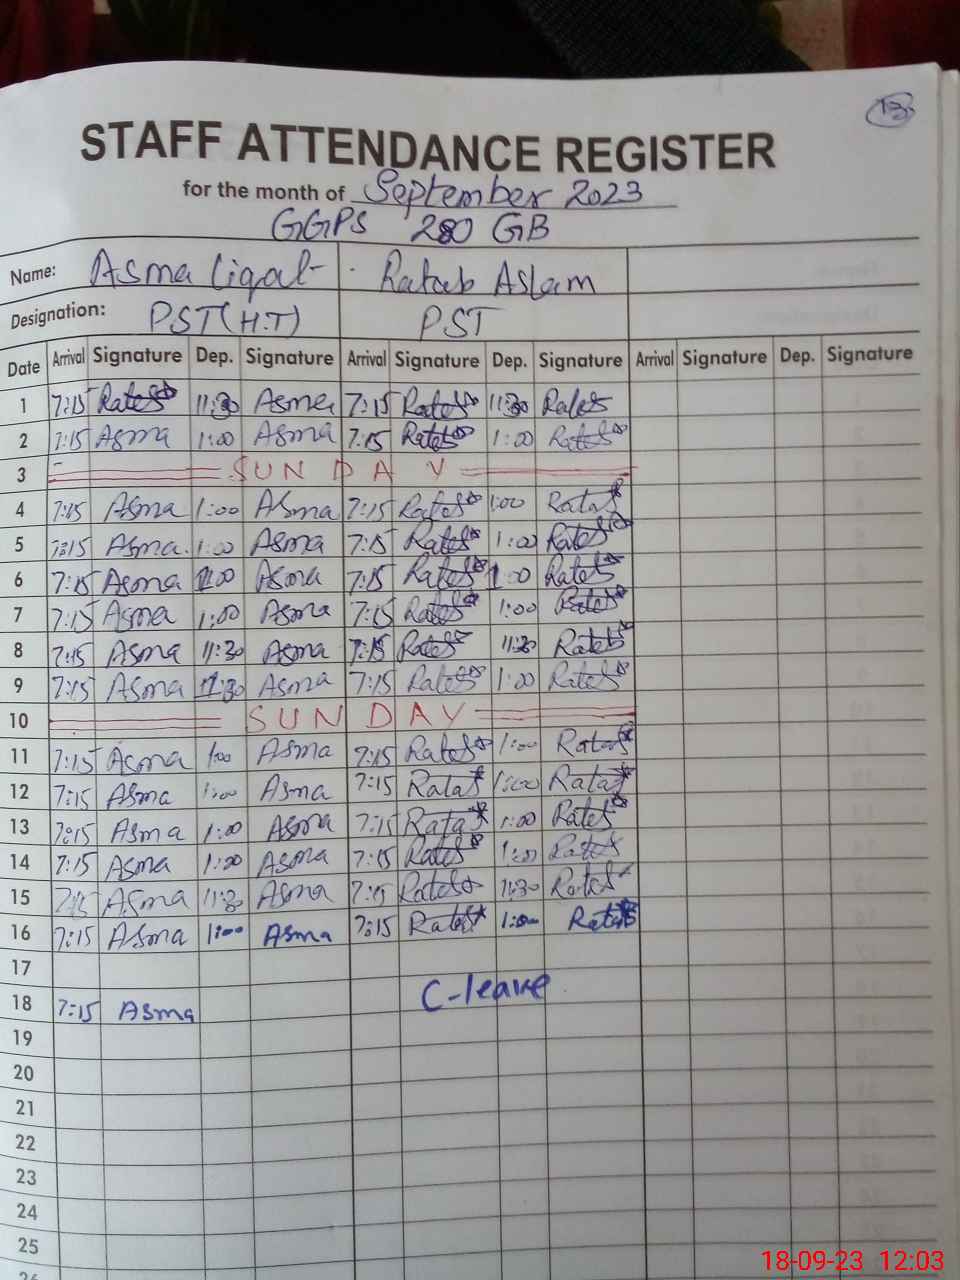 13
STAFF ATTENDANCE REGISTER
for the month of September 2023
GGPS 280 GB
Name: Asma liqat Ratab Aslam
Designation: PST(H.T) PST
Date Arrival Signature Dep. Signature Arrival Signature Dep. Signature Arrival Signature Dep. Signature
1 7:15 Ratab 11:30 Asma 7:15 Ratab 11:30 Ratab
2 7:15 Asma 1:00 Asma 7:15 Ratab 1:00 Ratab
3 SUNDAY
4 7:15 Asma 1:00 Asma 7:15 Ratab 1:00 Ratab
5 7:15 Asma 1:00 Asma 7:15 Ratab 1:00 Ratab
6 7:15 Asma 1:00 Asma 7:15 Ratab 1:00 Ratab
7 7:15 Asma 1:00 Asma 7:15 Ratab 1:00 Ratab
8 7:15 Asma 11:30 Asma 7:15 Ratab 11:30 Ratab
9 7:15 Asma 11:30 Asma 7:15 Ratab 1:00 Ratab
10 SUNDAY
11 7:15 Asma 1:00 Asma 7:15 Ratab 1:00 Ratab
12 7:15 Asma 1:00 Asma 7:15 Ratab 1:00 Ratab
13 7:15 Asma 1:00 Asma 7:15 Ratab 1:00 Ratab
14 7:15 Asma 1:00 Asma 7:15 Ratab 1:00 Ratab
15 7:15 Asma 11:30 Asma 7:15 Ratab 11:30 Ratab
16 7:15 Asma 1:00 Asma 7:15 Ratab 1:00 Ratab
17
18 7:15 Asma C-leave
19
20
21
22
23
24
25
26
18-09-23 12:03